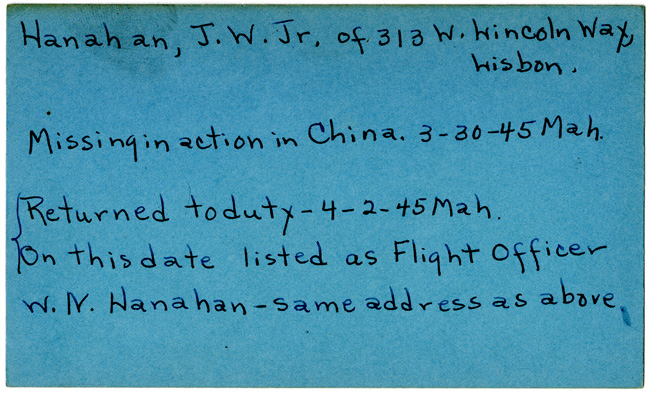 Hanahan, J. W. Jr. of 313 W. Lincoln Way,
Lisbon.
Missing in action in China. 3-30-45 Mah.
Returned to duty - 4-2-45 Mah.
On this date listed as Flight Officer
W. N. Hanahan - same address as above.